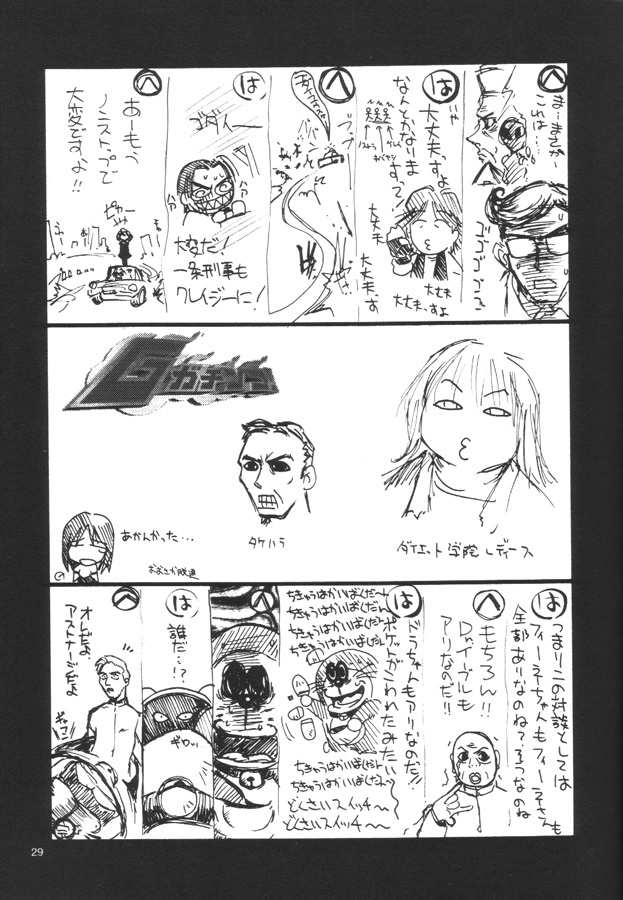 へ
ま…まさか
これは…
ゴゴゴゴゴゴ
は
じゃ
大丈夫、すよ
なんとかなりま
すって!
大丈夫
大丈夫
大丈夫、す
大丈夫、すよ
へ
ブブ
は
ハァ
ハァ
大変だ!
一条刑事も
クレイジーに!
へ
あーもう
ノンストップで
大変ですよ!!
ピカー
ダイエット学院レディース
タケハラ
あかんかった…
は
つまりこの対談としては
フィーネちゃんもフィーネさんも
全部ありなのね?そうなのね
へ
もちろん!!
Dr.イーブルも
アリなのだ!!
は
ドラちゃんもアリなのだ!!
ポケットがこわれたみたい〜
ちきゅうはかいばくだ〜
ちきゅうはかいばくだん
ちきゅうはかいばくだ〜
ちきゅうはかいばくだん
ちきゅうはかいばくだ〜
ちきゅうはかいばくだん〜
どくさいスイッチ〜
どくさいスイッチ〜
へ
は
誰だ…!?
ギロッ
へ
オレだよ、
アストナージだよ
29